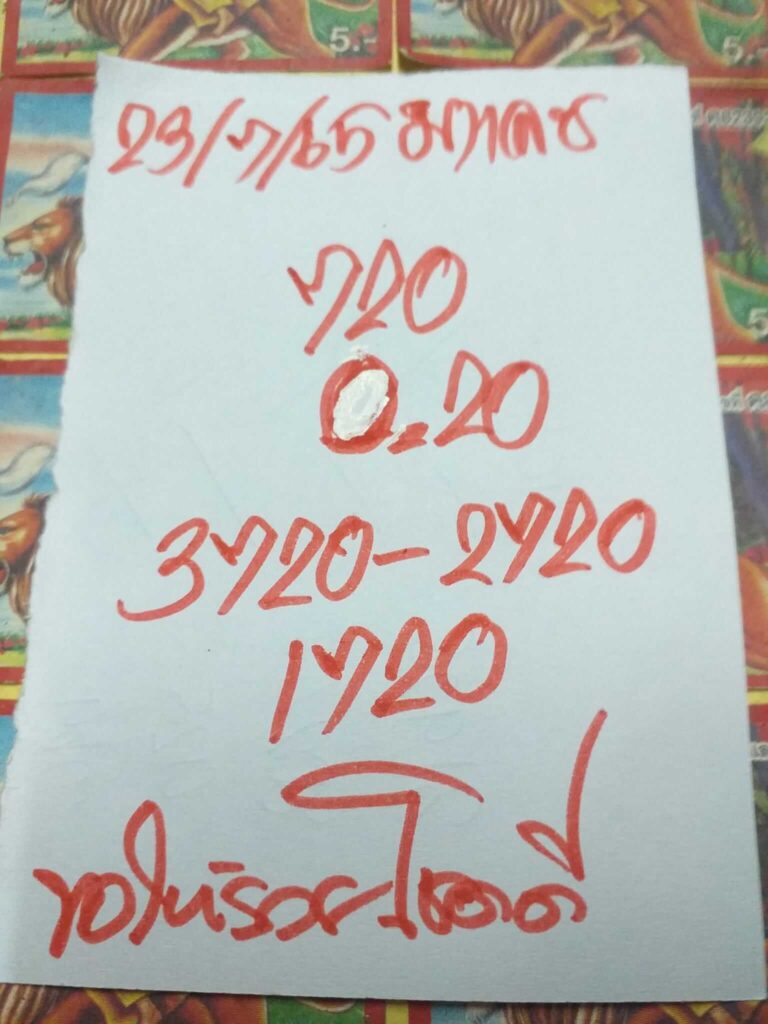 23/7/65 มาเลย์
720
0.20
3720-2720
1720
ขอให้รวยโชคดี
5.-
5.-
5